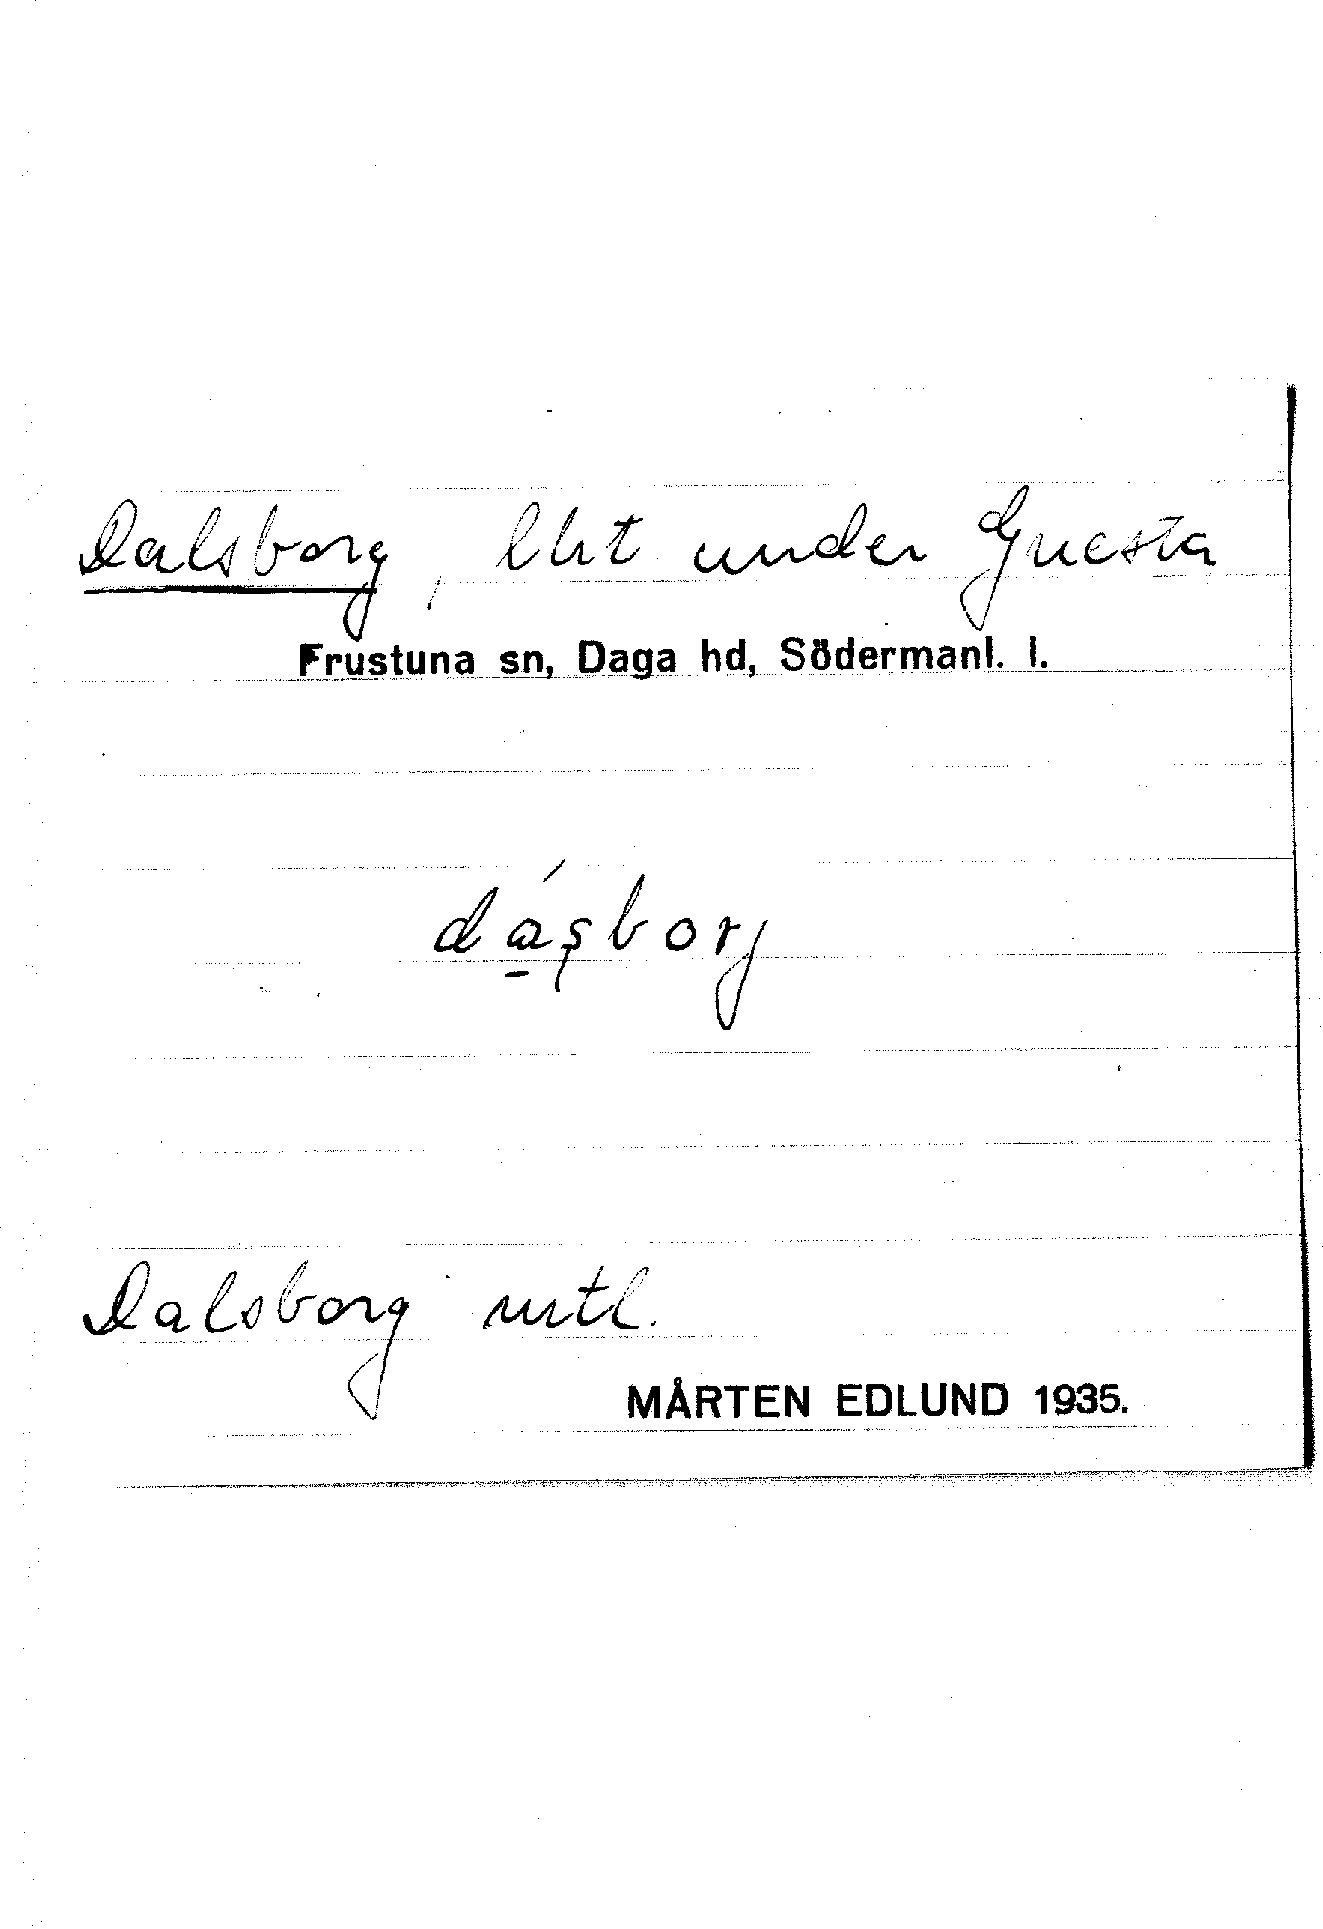 Dalsborg, lht under Gnesta
Frustuna sn, Daga hd, Södermanl. l.
dásborj
Dalsborg mtl.
MÅRTEN EDLUND 1935.